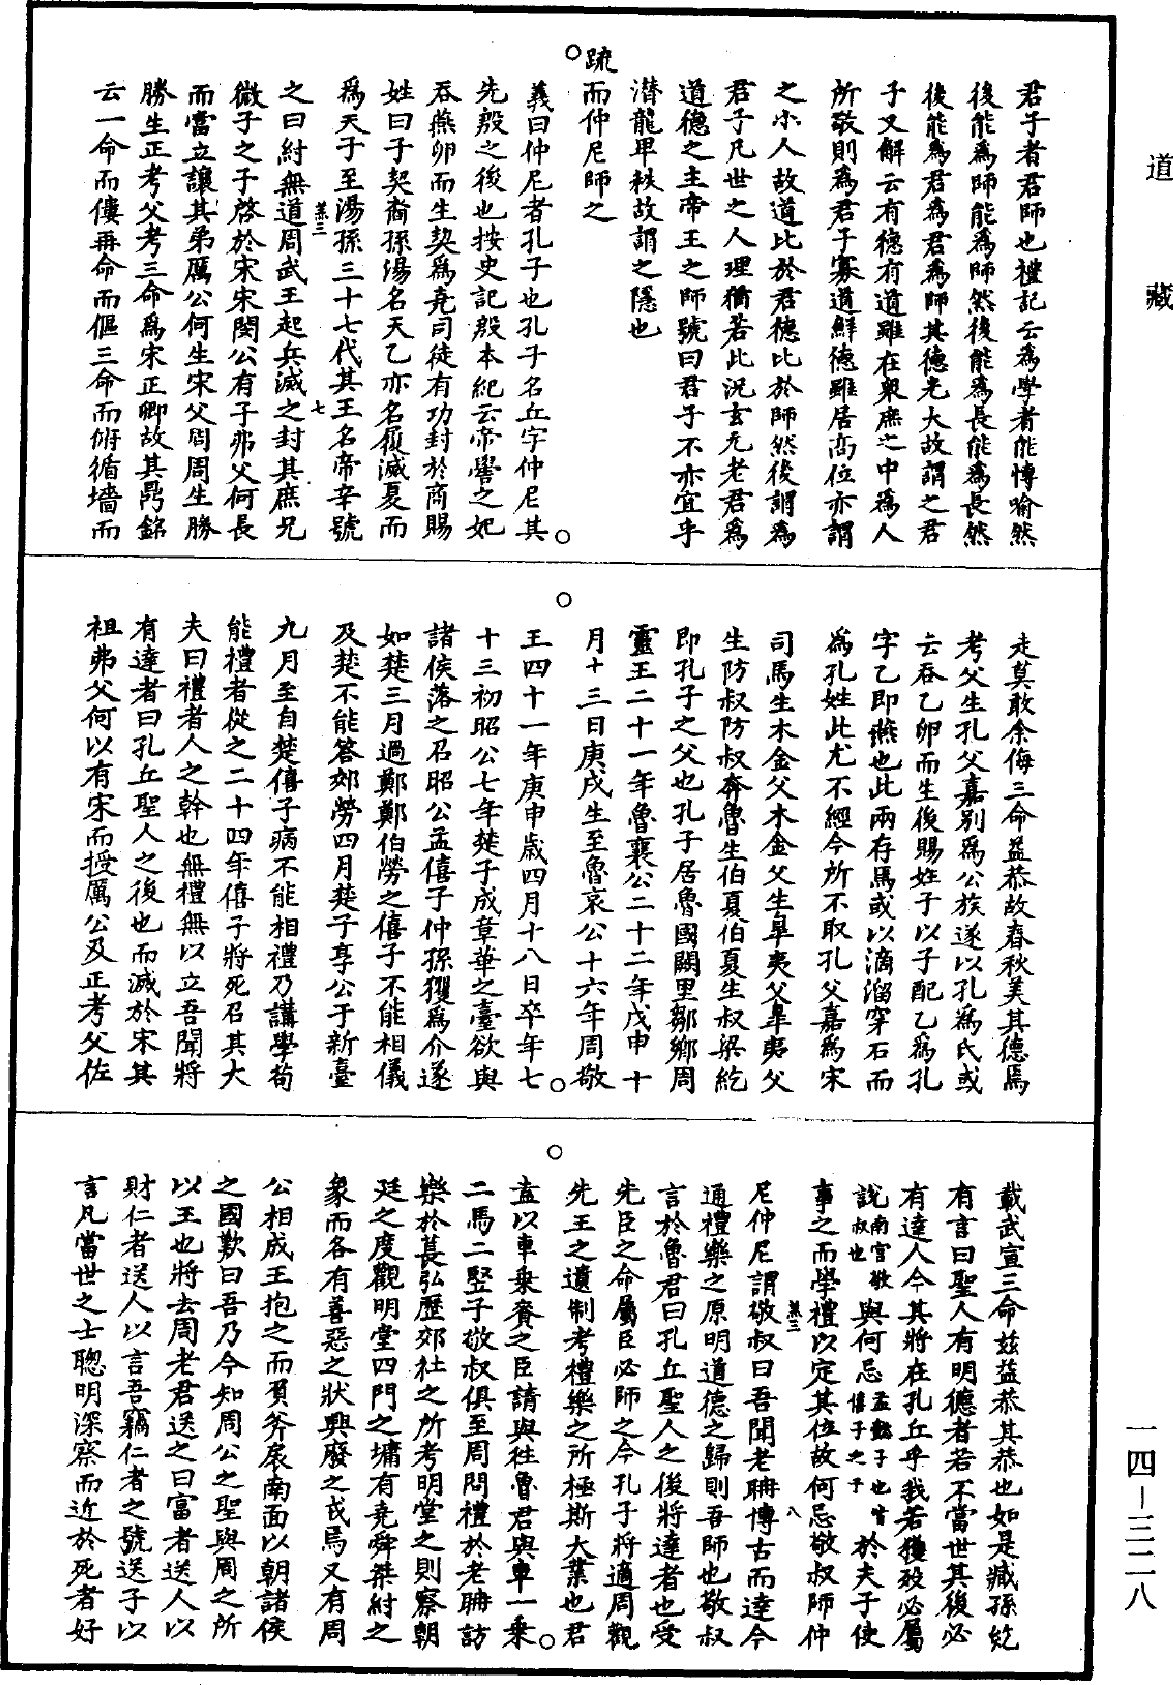 道藏
君子者君師也禮記云爲學者能博喻然
後能爲師能爲師然後能爲長能爲長然
後能爲君爲君爲師其德光大故謂之君
子又解云有德有道雖在衆庶之中爲人
所敬則爲君子寡道鮮德雖居高位亦謂
之小人故道比於君德比於師然後謂爲
君子凡世之人理猶若此況玄元老君爲
道德之主帝王之師號曰君子不亦宜乎
潛龍卑秩故謂之隱也
疏而仲尼師之
義曰仲尼者孔子也孔子名丘字仲尼其
先殷之後也按史記殷本紀云帝嚳之妃
吞燕卵而生契爲堯司徒有功封於商賜
姓曰子契裔孫湯名天乙亦名履滅夏而
爲天子至湯孫三十七代其王名帝辛號
羔三 七
之曰紂無道周武王起兵滅之封其庶兄
微子之子啓於宋宋閔公有子弗父何長
而當立讓其弟厲公何生宋父周周生勝
勝生正考父考三命爲宋正卿故其鼎銘
云一命而僂再命而傴三命而俯循墻而
走莫敢余侮三命益恭故春秋美其德焉
考父生孔父嘉別爲公族遂以孔爲氏或
云吞乙卵而生後賜姓子以子配乙爲孔
字乙即燕也此兩存焉或以滴溜穿石而
爲孔姓此尤不經今所不取孔父嘉爲宋
司馬生木金父木金父生睪夷父睪夷父
生防叔防叔奔魯生伯夏伯夏生叔梁紇
即孔子之父也孔子居魯國闕里鄒鄉周
靈王二十一年魯襄公二十二年戊申十
月十三日庚戌生至魯哀公十六年周敬
王四十一年庚申歲四月十八日卒年七
十三初昭公七年楚子成章華之臺欲與
諸侯落之召昭公孟僖子仲孫玃爲介遂
如楚三月過鄭鄭伯勞之僖子不能相儀
及楚不能答郊勞四月楚子享公于新臺
九月至自楚僖子病不能相禮乃講學苟
能禮者從之二十四年僖子將死召其大
夫曰禮者人之幹也無禮無以立吾聞將
有達者曰孔丘聖人之後也而滅於宋其
祖弗父何以有宋而授厲公及正考父佐
戴武宣三命茲益恭其恭也如是臧孫紇
有言曰聖人有明德者若不當世其後必
有達人今其將在孔丘乎我若獲歿必屬
說南宮敬叔也與何忌孟懿子也皆僖子之子於夫子使
事之而學禮以定其位故何忌敬叔師仲
羔三 八
尼仲尼謂敬叔曰吾聞老聃博古而達今
通禮樂之原明道德之歸則吾師也敬叔
言於魯君曰孔丘聖人之後將達者也受
先臣之命屬臣必師之今孔子將適周觀
先王之遺制考禮樂之所極斯大業也君
盍以車乘賚之臣請與往魯君與車一乘
二馬二竪子敬叔俱至周問禮於老聃訪
樂於萇弘歷郊社之所考明堂之則察朝
廷之度觀明堂四門之墉有堯舜桀紂之
象而各有善惡之狀興廢之戒焉又有周
公相成王抱之而負斧扆南面以朝諸侯
之國歎曰吾乃今知周公之聖與周之所
以王也將去周老君送之曰富者送人以
財仁者送人以言吾竊仁者之號送子以
言凡當世之士聰明深察而近於死者好
一四-三二八